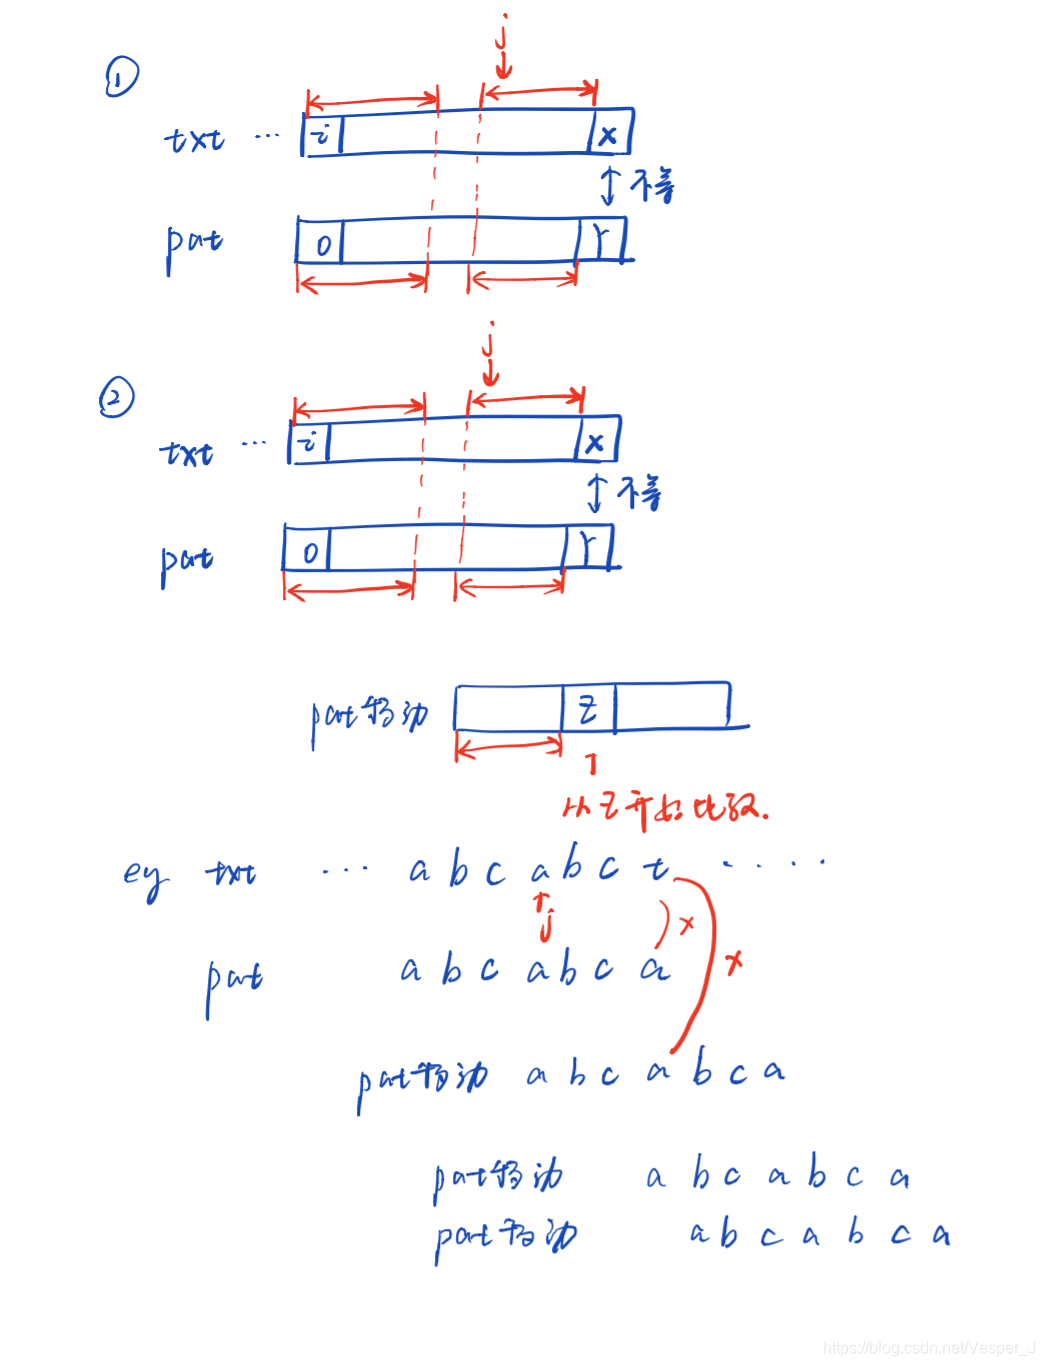 j
①
txt ... i x
不等
pat 0 Y
j
②
txt ... i x
不等
pat 0 Y
pat移动 Z
从Z开始比较.
eg txt ... a b c a b c t ....
j
x
pat a b c a b c a
x
pat移动 a b c a b c a
pat移动 a b c a b c a
pat移动 a b c a b c a
https://blog.csdn.net/Vesper_J